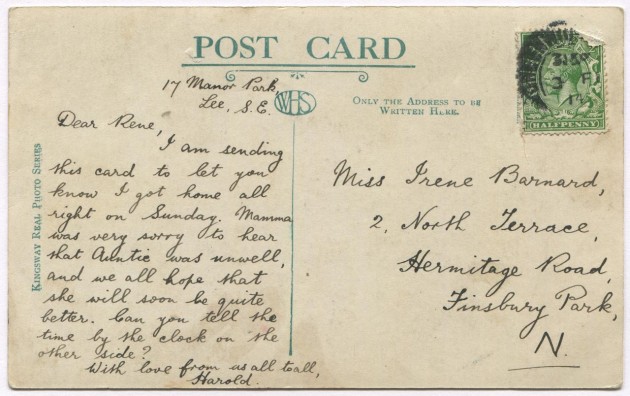 POST CARD
17 Manor Park,
Lee, S.E.
WHS
ONLY THE ADDRESS TO BE
WRITTEN HERE.
HALFPENNY
Dear Rene,
I am sending
this card to let you
know I got home all
right on Sunday. Mamma
was very sorry to hear
that Auntie was unwell,
and we all hope that
she will soon be quite
better. Can you tell the
time by the clock on the
other side?
With love from us all to all,
Harold.
KINGSWAY REAL PHOTO SERIES
Miss Irene Barnard,
2, North Terrace,
Hermitage Road,
Finsbury Park,
N.